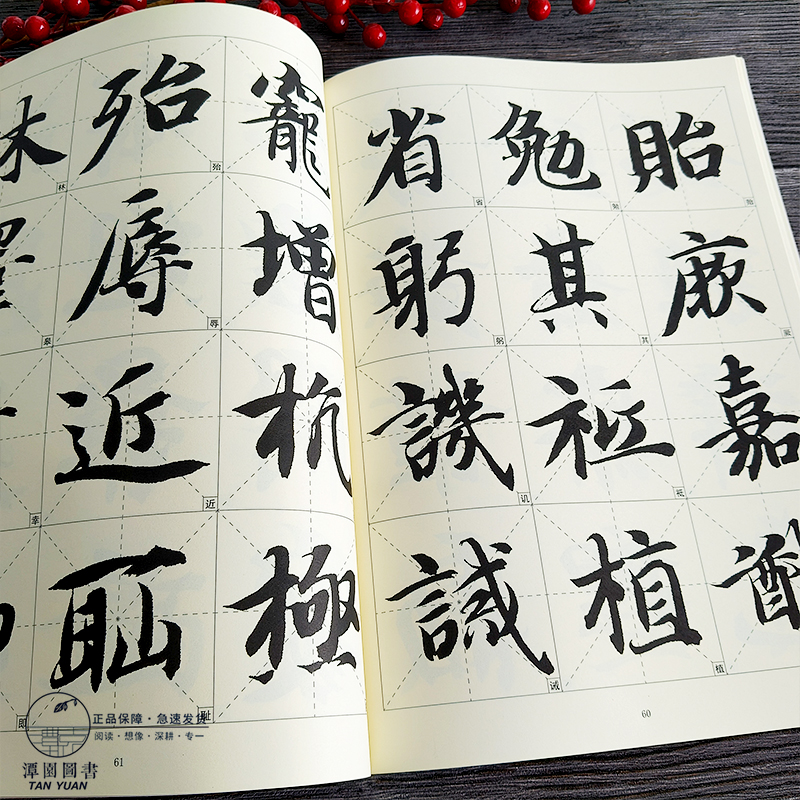 貽厥嘉
勉其祗植
省躬譏誡
省
躬
其
讥
祗
诫
植
60
寵增抗極
殆辱近恥
林
殆
辱
近
耻
林
幸
即
61
正品保障·急速发货
阅读·想像·深耕·专一
潭園圖書
TAN YUAN